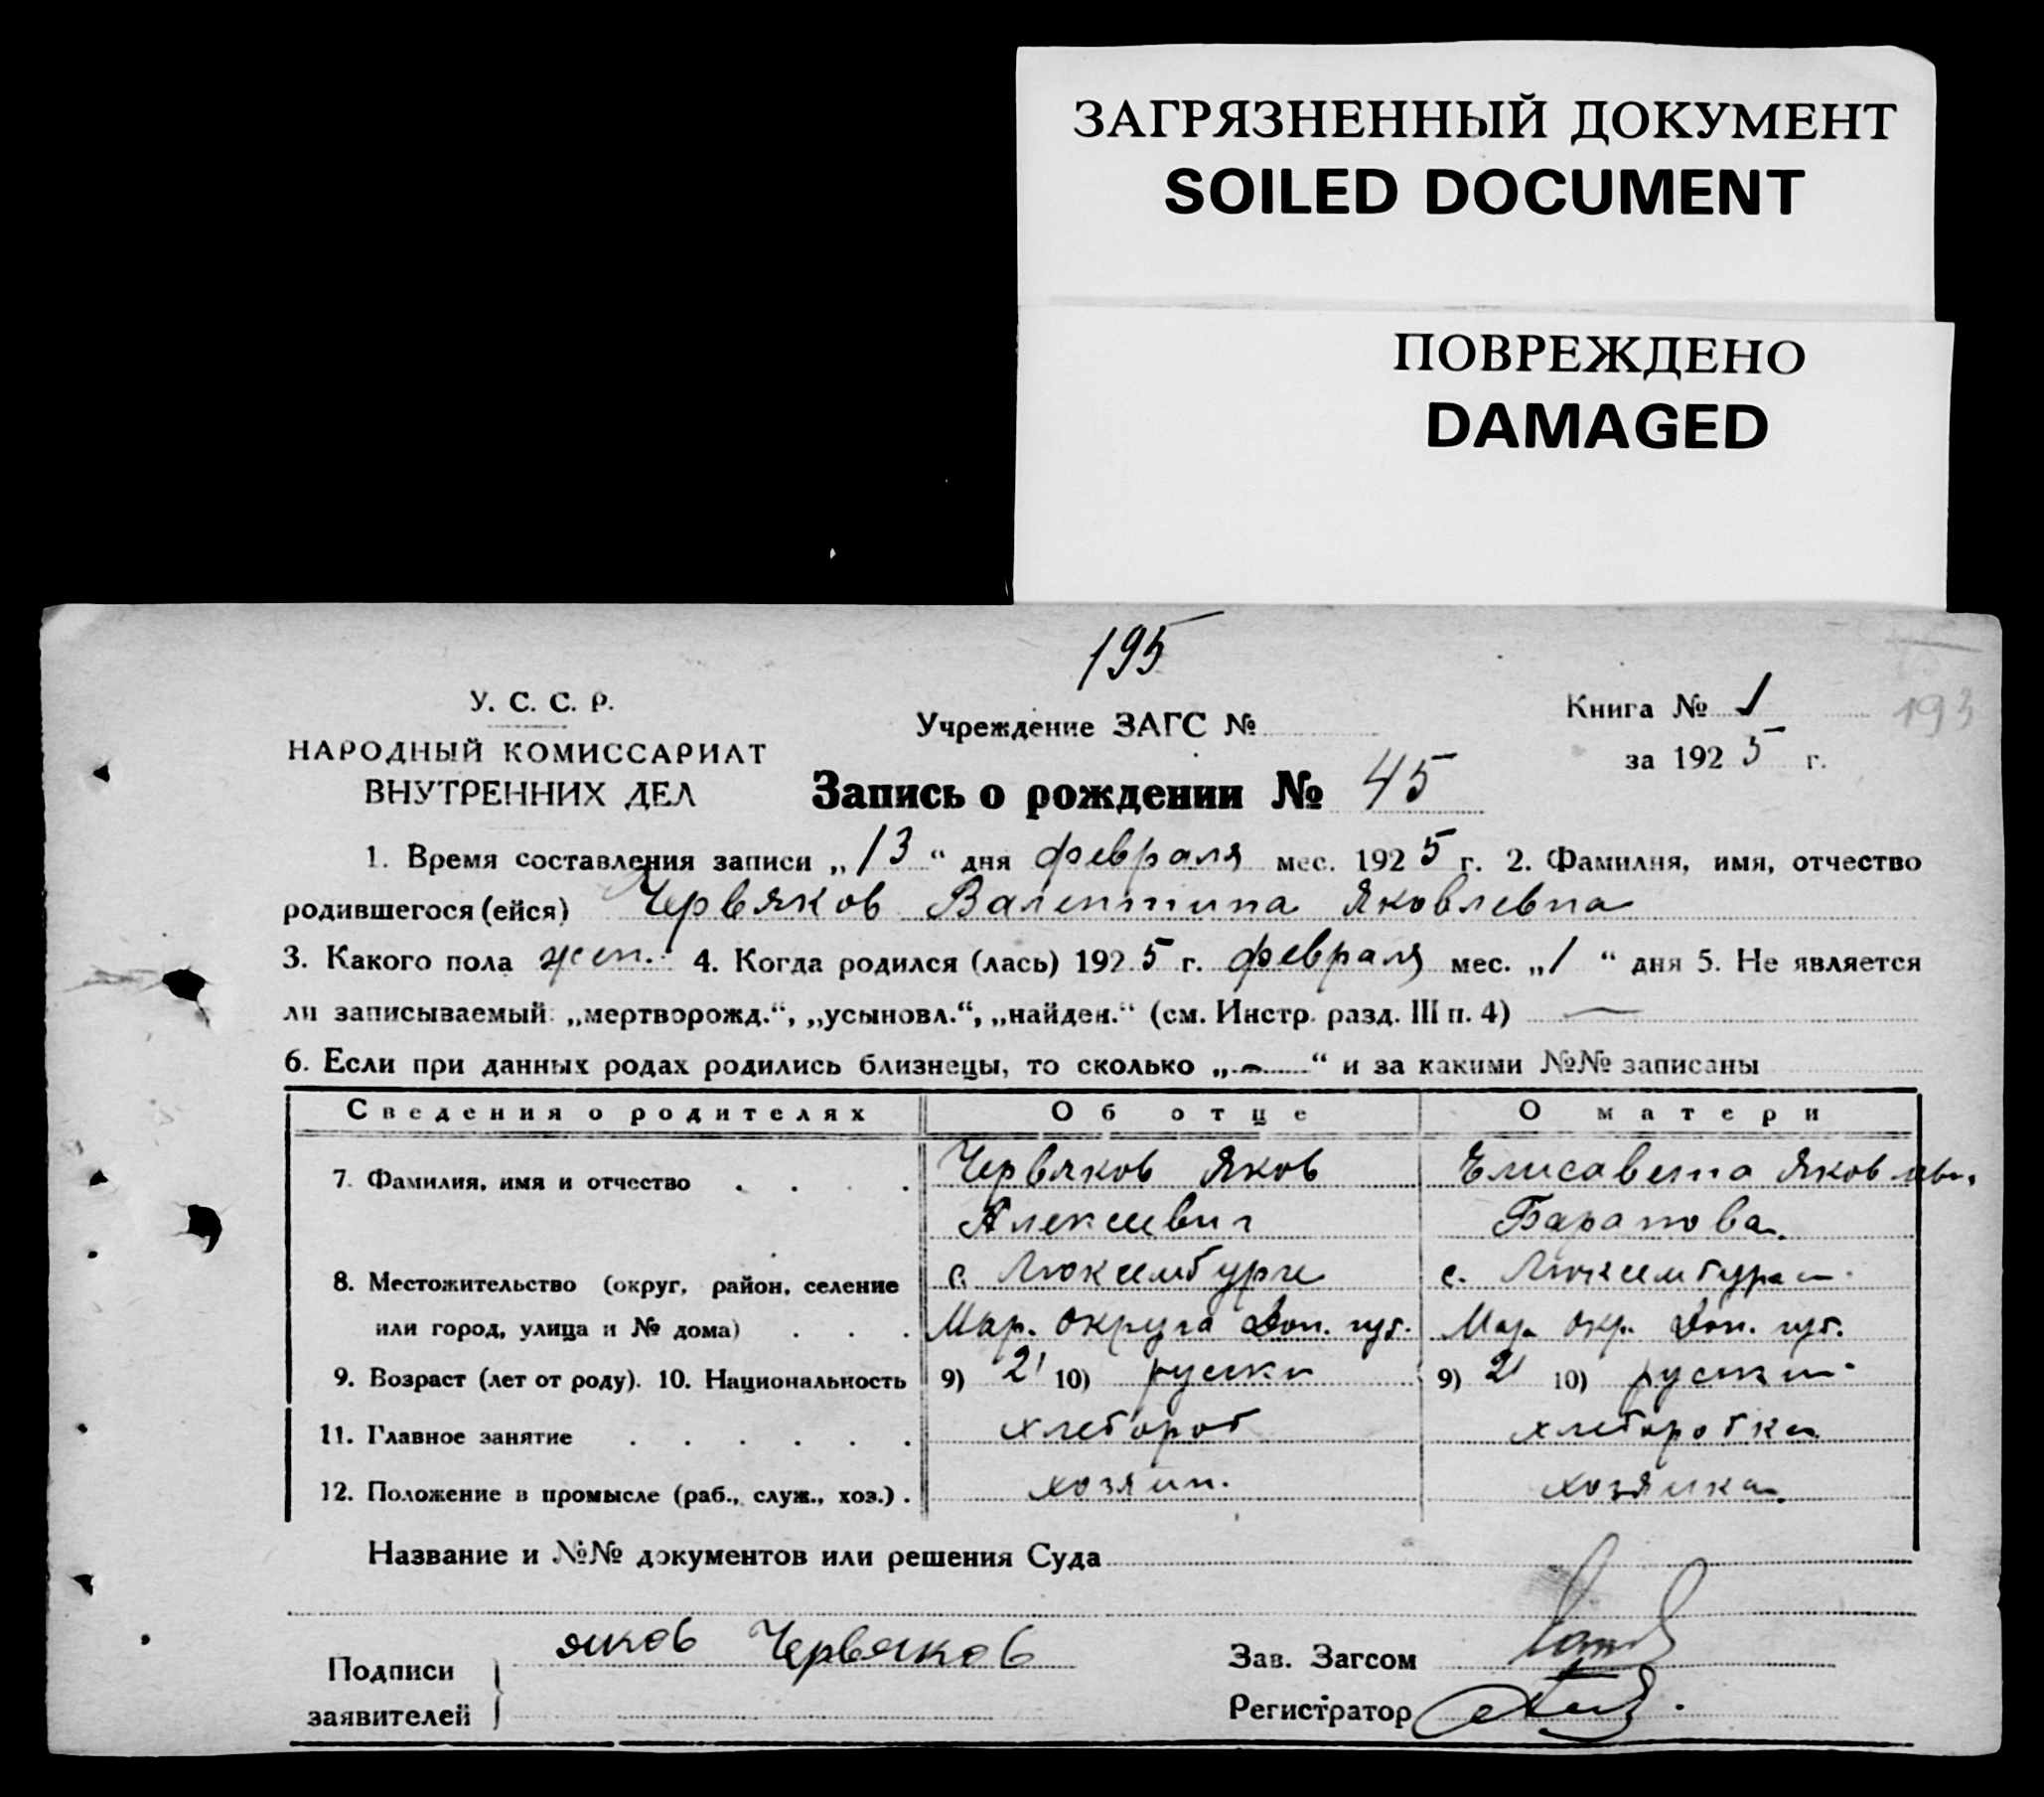 ЗАГРЯЗНЕННЫЙ ДОКУМЕНТ
SOILED DOCUMENT
ПОВРЕЖДЕНО
DAMAGED
195
193
У. С. С. Р.
НАРОДНЫЙ КОМИССАРИАТ
ВНУТРЕННИХ ДЕЛ
Учреждение ЗАГС №
Книга № 1
за 1925 г.
Запись о рождении № 45
1. Время составления записи „13“ дня февраля мес. 1925 г. 2. Фамилия, имя, отчество
родившегося (ейся) Червяков Валентина Яковлевна
3. Какого пола жен. 4. Когда родился (лась) 1925 г. февраля мес. „1“ дня 5. Не является
ли записываемый: „мертворожд.“, „усыновл.“, „найден.“ (см. Инстр. разд. III п. 4) —
6. Если при данных родах родились близнецы, то сколько „—“ и за какими №№ записаны
Сведения о родителях Об отце О матери
7. Фамилия, имя и отчество . . . . Червяков Яков Елисавета Яковлевн.
Алексеевич Баранова
8. Местожительство (округ, район, селение с. Люксембурге с. Люксембурге
или город, улица и № дома) . . . Мар. округа Дон. губ. Мар. окр. Дон. губ.
9. Возраст (лет от роду). 10. Национальность 9) 21 10) руски 9) 21 10) руски
11. Главное занятие . . . . . . хлебороб хлеборобка
12. Положение в промысле (раб., служ., хоз.) . хозяин. хозяйка.
Название и №№ документов или решения Суда
Подписи заявителей яков Червяков
Зав. Загсом
Регистратор